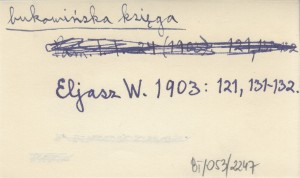 bukowińska księga
Eljasz W. 1903: 121, 131-132.
BI/053/2247